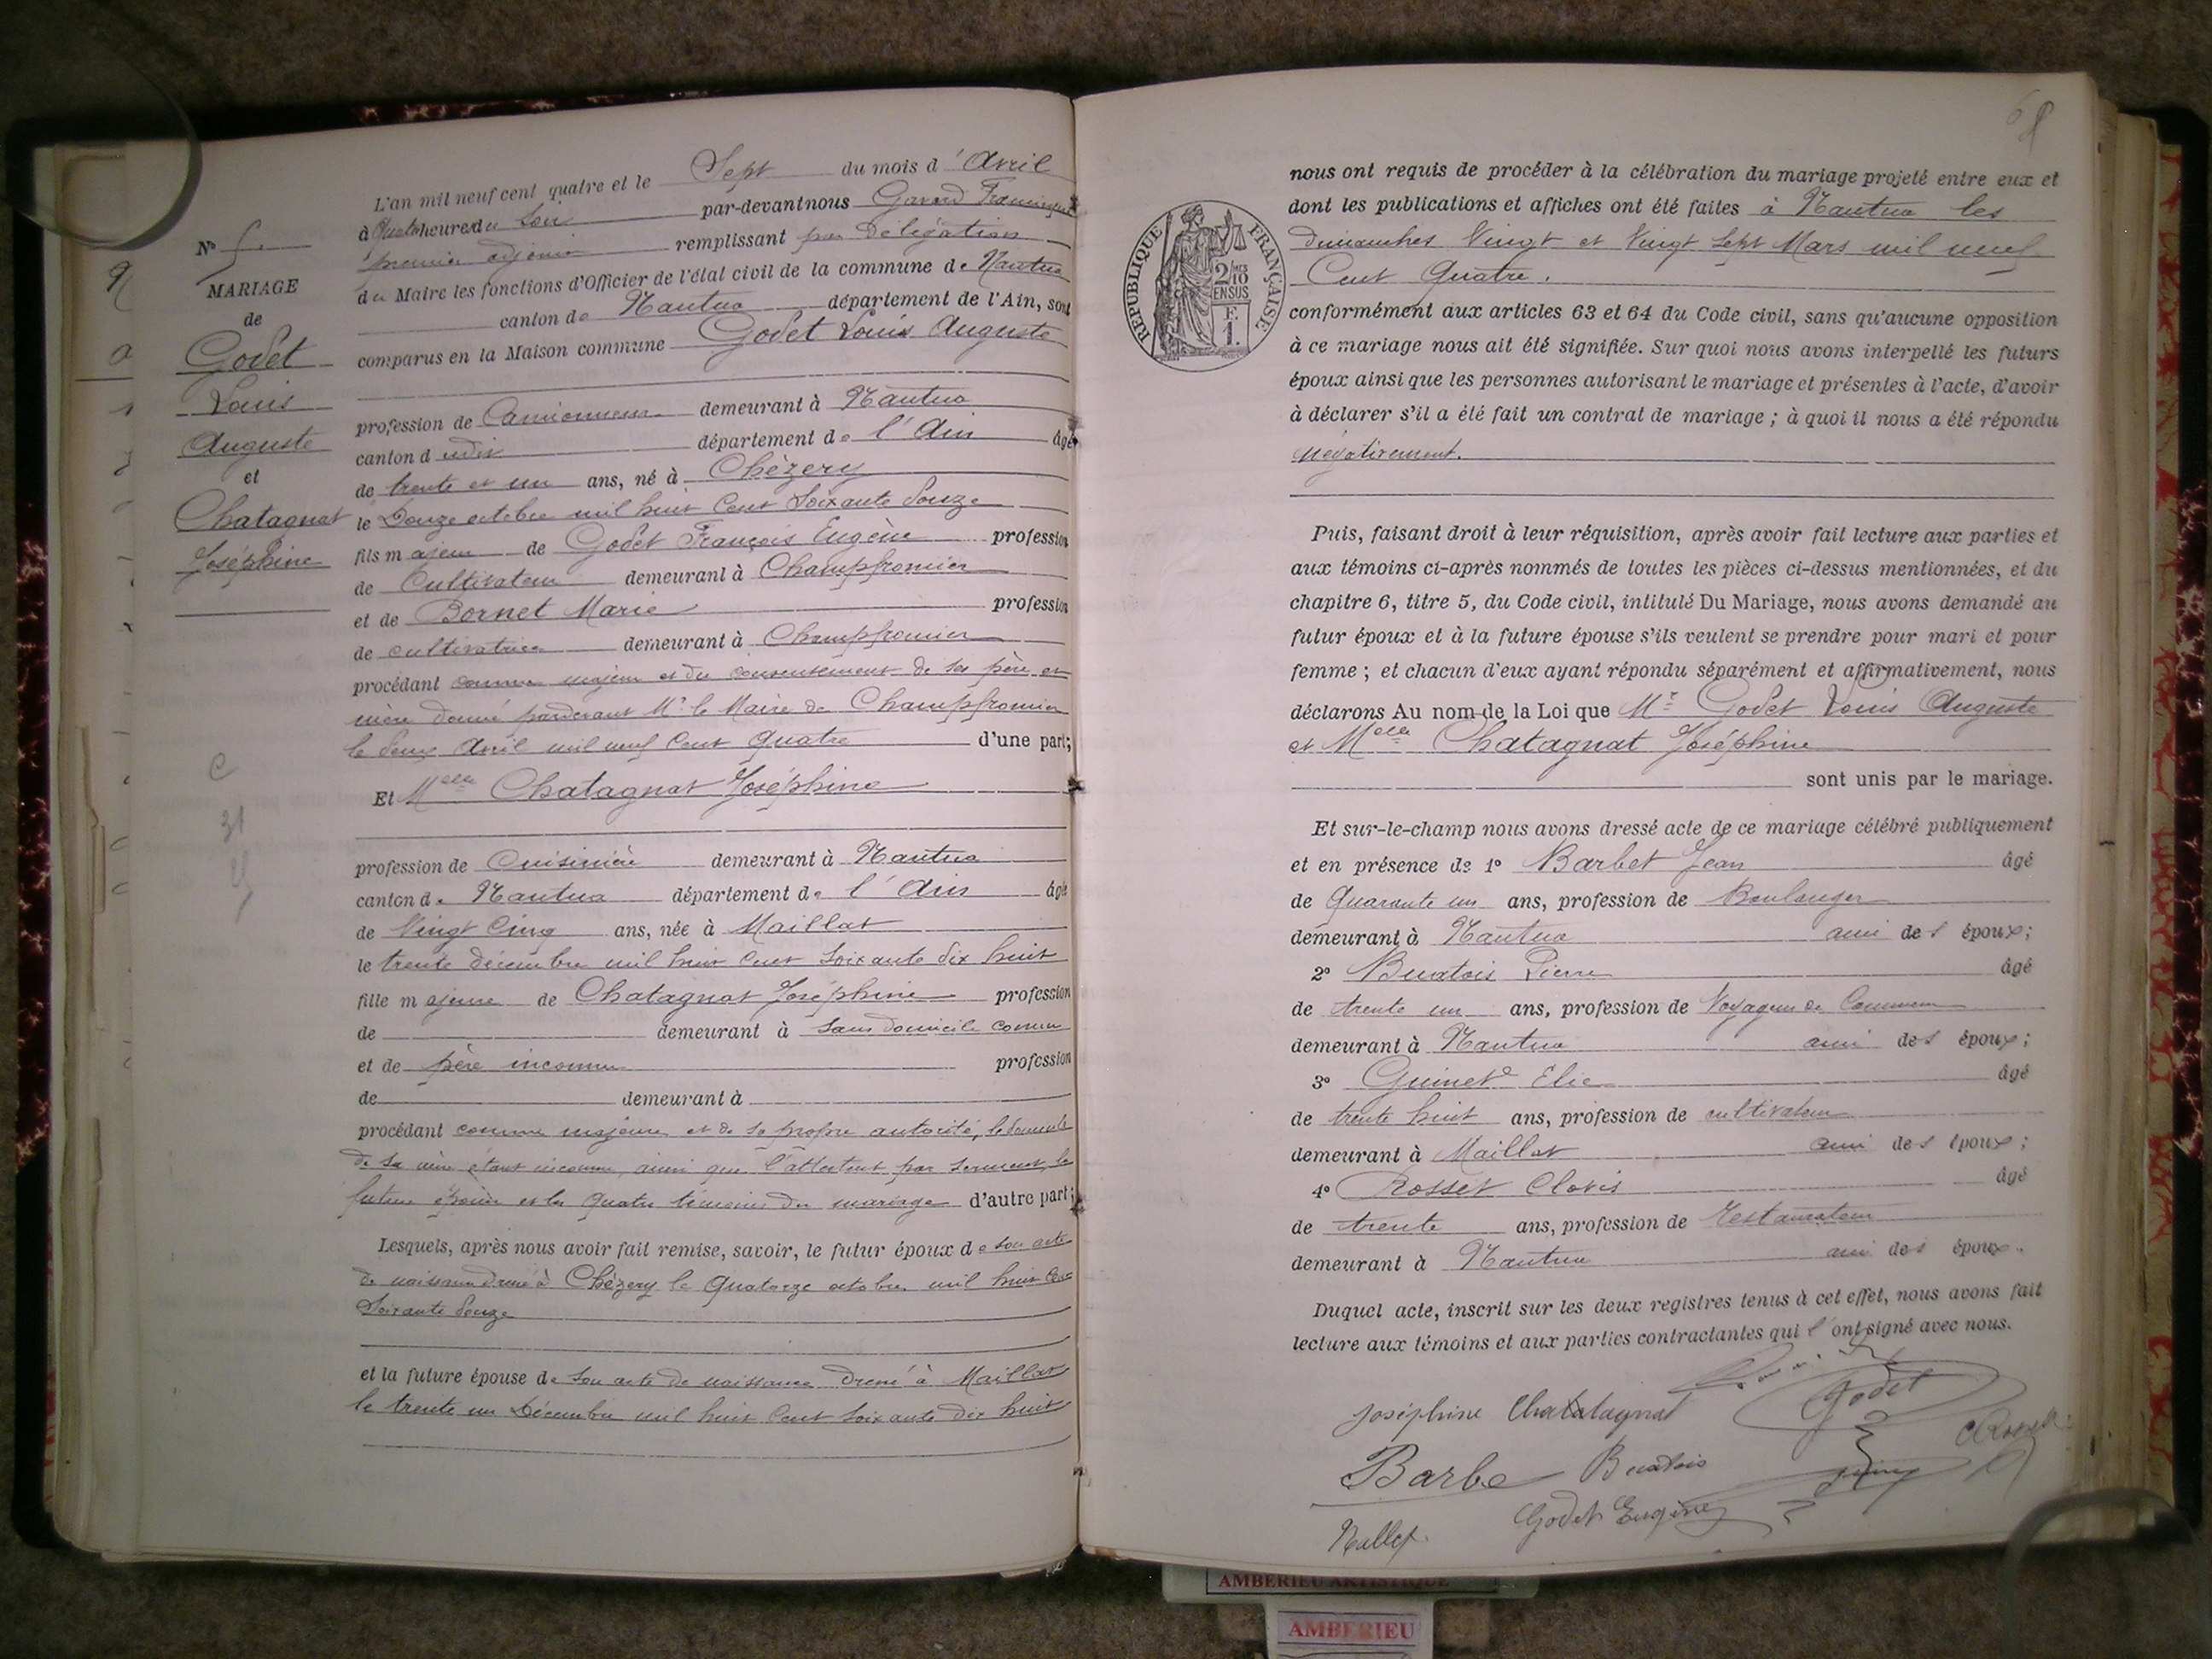 N° 5.
MARIAGE
de
Godet
Louis
Auguste
et
Chatagnat
Joséphine
L'an mil neuf cent quatre et le Sept du mois d'Avril
à Quatre heures du Soir par-devant nous Gavard
premier adjoint remplissant par Délégation
du Maire les fonctions d'Officier de l'état civil de la commune de Nantua
canton de Nantua département de l'Ain, sont
comparus en la Maison commune Godet Louis Auguste
profession de Camionneur demeurant à Nantua
canton dudit département de l'Ain âgé
de trente et un ans, né à Chézery
le Douze octobre mil huit Cent Soixante douze
fils majeur de Godet François Eugène profession
de Cultivateur demeurant à Champfromier
et de Bornet Marie profession
de cultivatrice demeurant à Champfromier
procédant comme majeur et du consentement de ses père et
mère donné pardevant Mr le Maire de Champfromier
le deux Avril mil neuf Cent Quatre d'une part;
Et Melle Chatagnat Joséphine
profession de Cuisinière demeurant à Nantua
canton de Nantua département de l'Ain âgée
de Vingt Cinq ans, née à Maillat
le trente décembre mil huit Cent Soixante dix huit
fille majeure de Chatagnat Joséphine profession
de demeurant à sans domicile connu
et de père inconnu profession
de demeurant à
procédant comme majeure et de sa propre autorité, le domicile
de sa mère étant inconnu, ainsi que l'attestent par serment, la
future épouse et les quatre témoins du mariage d'autre part;
Lesquels, après nous avoir fait remise, savoir, le futur époux de son acte
de naissance dressé à Chézery le Quatorze octobre mil huit Cent
Soixante douze
et la future épouse de son acte de naissance dressé à Maillat
le trente un Décembre mil huit Cent Soixante dix huit
68
RÉPUBLIQUE FRANÇAISE
2/10
EN SUS
F.
1.
nous ont requis de procéder à la célébration du mariage projeté entre eux et
dont les publications et affiches ont été faites à Nantua les
dimanches Vingt et Vingt Sept Mars mil neuf
Cent Quatre.
conformément aux articles 63 et 64 du Code civil, sans qu'aucune opposition
à ce mariage nous ait été signifiée. Sur quoi nous avons interpellé les futurs
époux ainsi que les personnes autorisant le mariage et présentes à l'acte, d'avoir
à déclarer s'il a été fait un contrat de mariage ; à quoi il nous a été répondu
négativement.
Puis, faisant droit à leur réquisition, après avoir fait lecture aux parties et
aux témoins ci-après nommés de toutes les pièces ci-dessus mentionnées, et du
chapitre 6, titre 5, du Code civil, intitulé Du Mariage, nous avons demandé au
futur époux et à la future épouse s'ils veulent se prendre pour mari et pour
femme ; et chacun d'eux ayant répondu séparément et affirmativement, nous
déclarons Au nom de la Loi que Mr Godet Louis Auguste
et Melle Chatagnat Joséphine
sont unis par le mariage.
Et sur-le-champ nous avons dressé acte de ce mariage célébré publiquement
et en présence de 1° Barbet Jean âgé
de Quarante un ans, profession de Boulanger
demeurant à Nantua ami des époux;
2° Buatois Pierre âgé
de trente un ans, profession de Voyageur de Commerce
demeurant à Nantua ami des époux;
3° Guinet Elie âgé
de trente huit ans, profession de cultivateur
demeurant à Maillat ami des époux;
4° Rosset Clovis âgé
de trente ans, profession de restaurateur
demeurant à Nantua ami des époux.
Duquel acte, inscrit sur les deux registres tenus à cet effet, nous avons fait
lecture aux témoins et aux parties contractantes qui l'ont signé avec nous.
Joséphine Chatalagnat Godet
Barbe Buatois C Rosset
Godet Eugène
AMBERIEU ARTISTIQUE
AMBERIEU